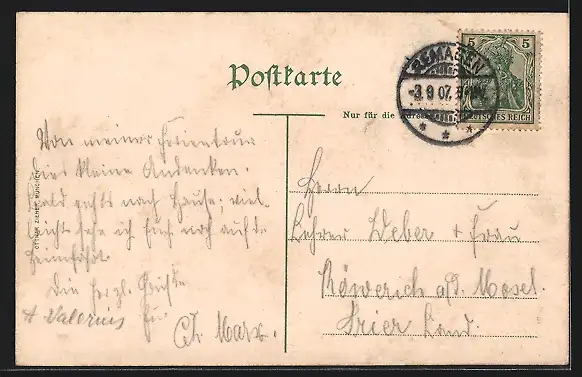 Postkarte
Nur für die Adresse
REMAGEN
-3 9 07
5 5
DEUTSCHES REICH
OTTMAR ZIEHER, MÜNCHEN
Von meiner Ferientour
dies kleine Andenken.
Bald gehts nach Hause, viel-
leicht sehe ich Euch noch auf de
Heimfahrt.
Die herzl. Grüße
+ Valerius Eu. Ch. Marx.
Herrn
Lehrer Weber + Frau
Köwerich a/d. Mosel.
Trier Land.